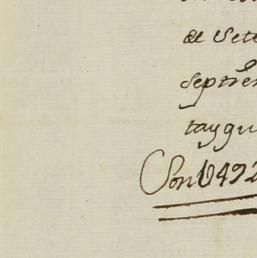 de Sete
septrē
tay qu
Son U492